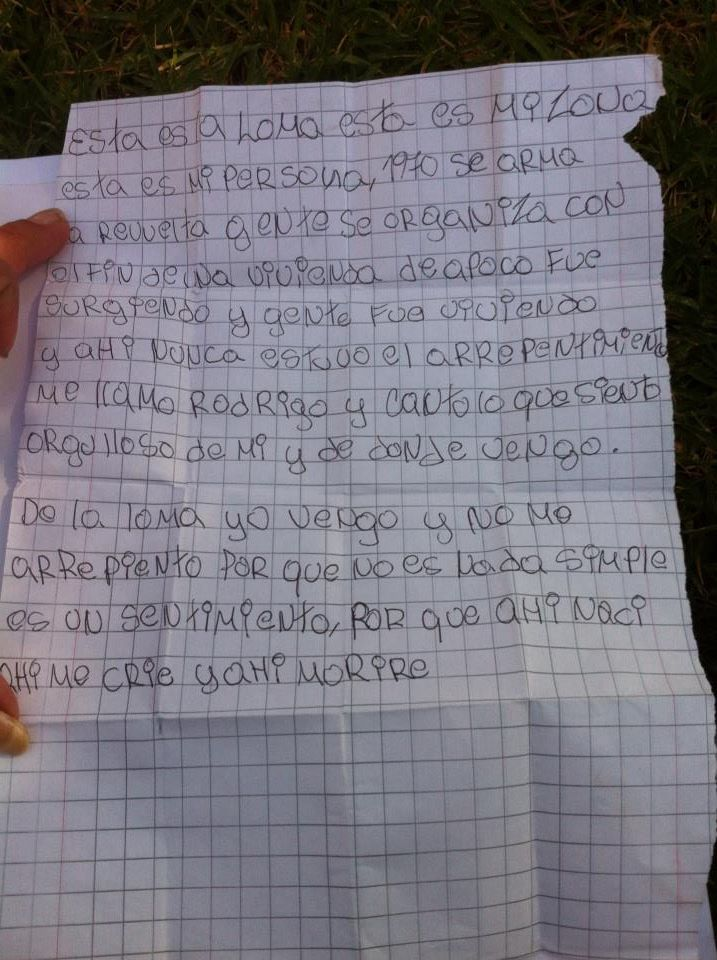 Esta es la Loma esta es mi zona
esta es mi persona, 1970 se arma
la revuelta gente se organiza con
el fin de una vivienda de apoco fue
surgiendo y gente fue viviendo
y ahi nunca estuvo el arrepentimiento
me llamo Rodrigo y canto lo que siento
orgulloso de mi y de donde vengo.
De la loma yo vengo y no me
arrepiento por que no es nada simple
es un sentimiento, por que ahi naci
ahi me crie y ahi morire